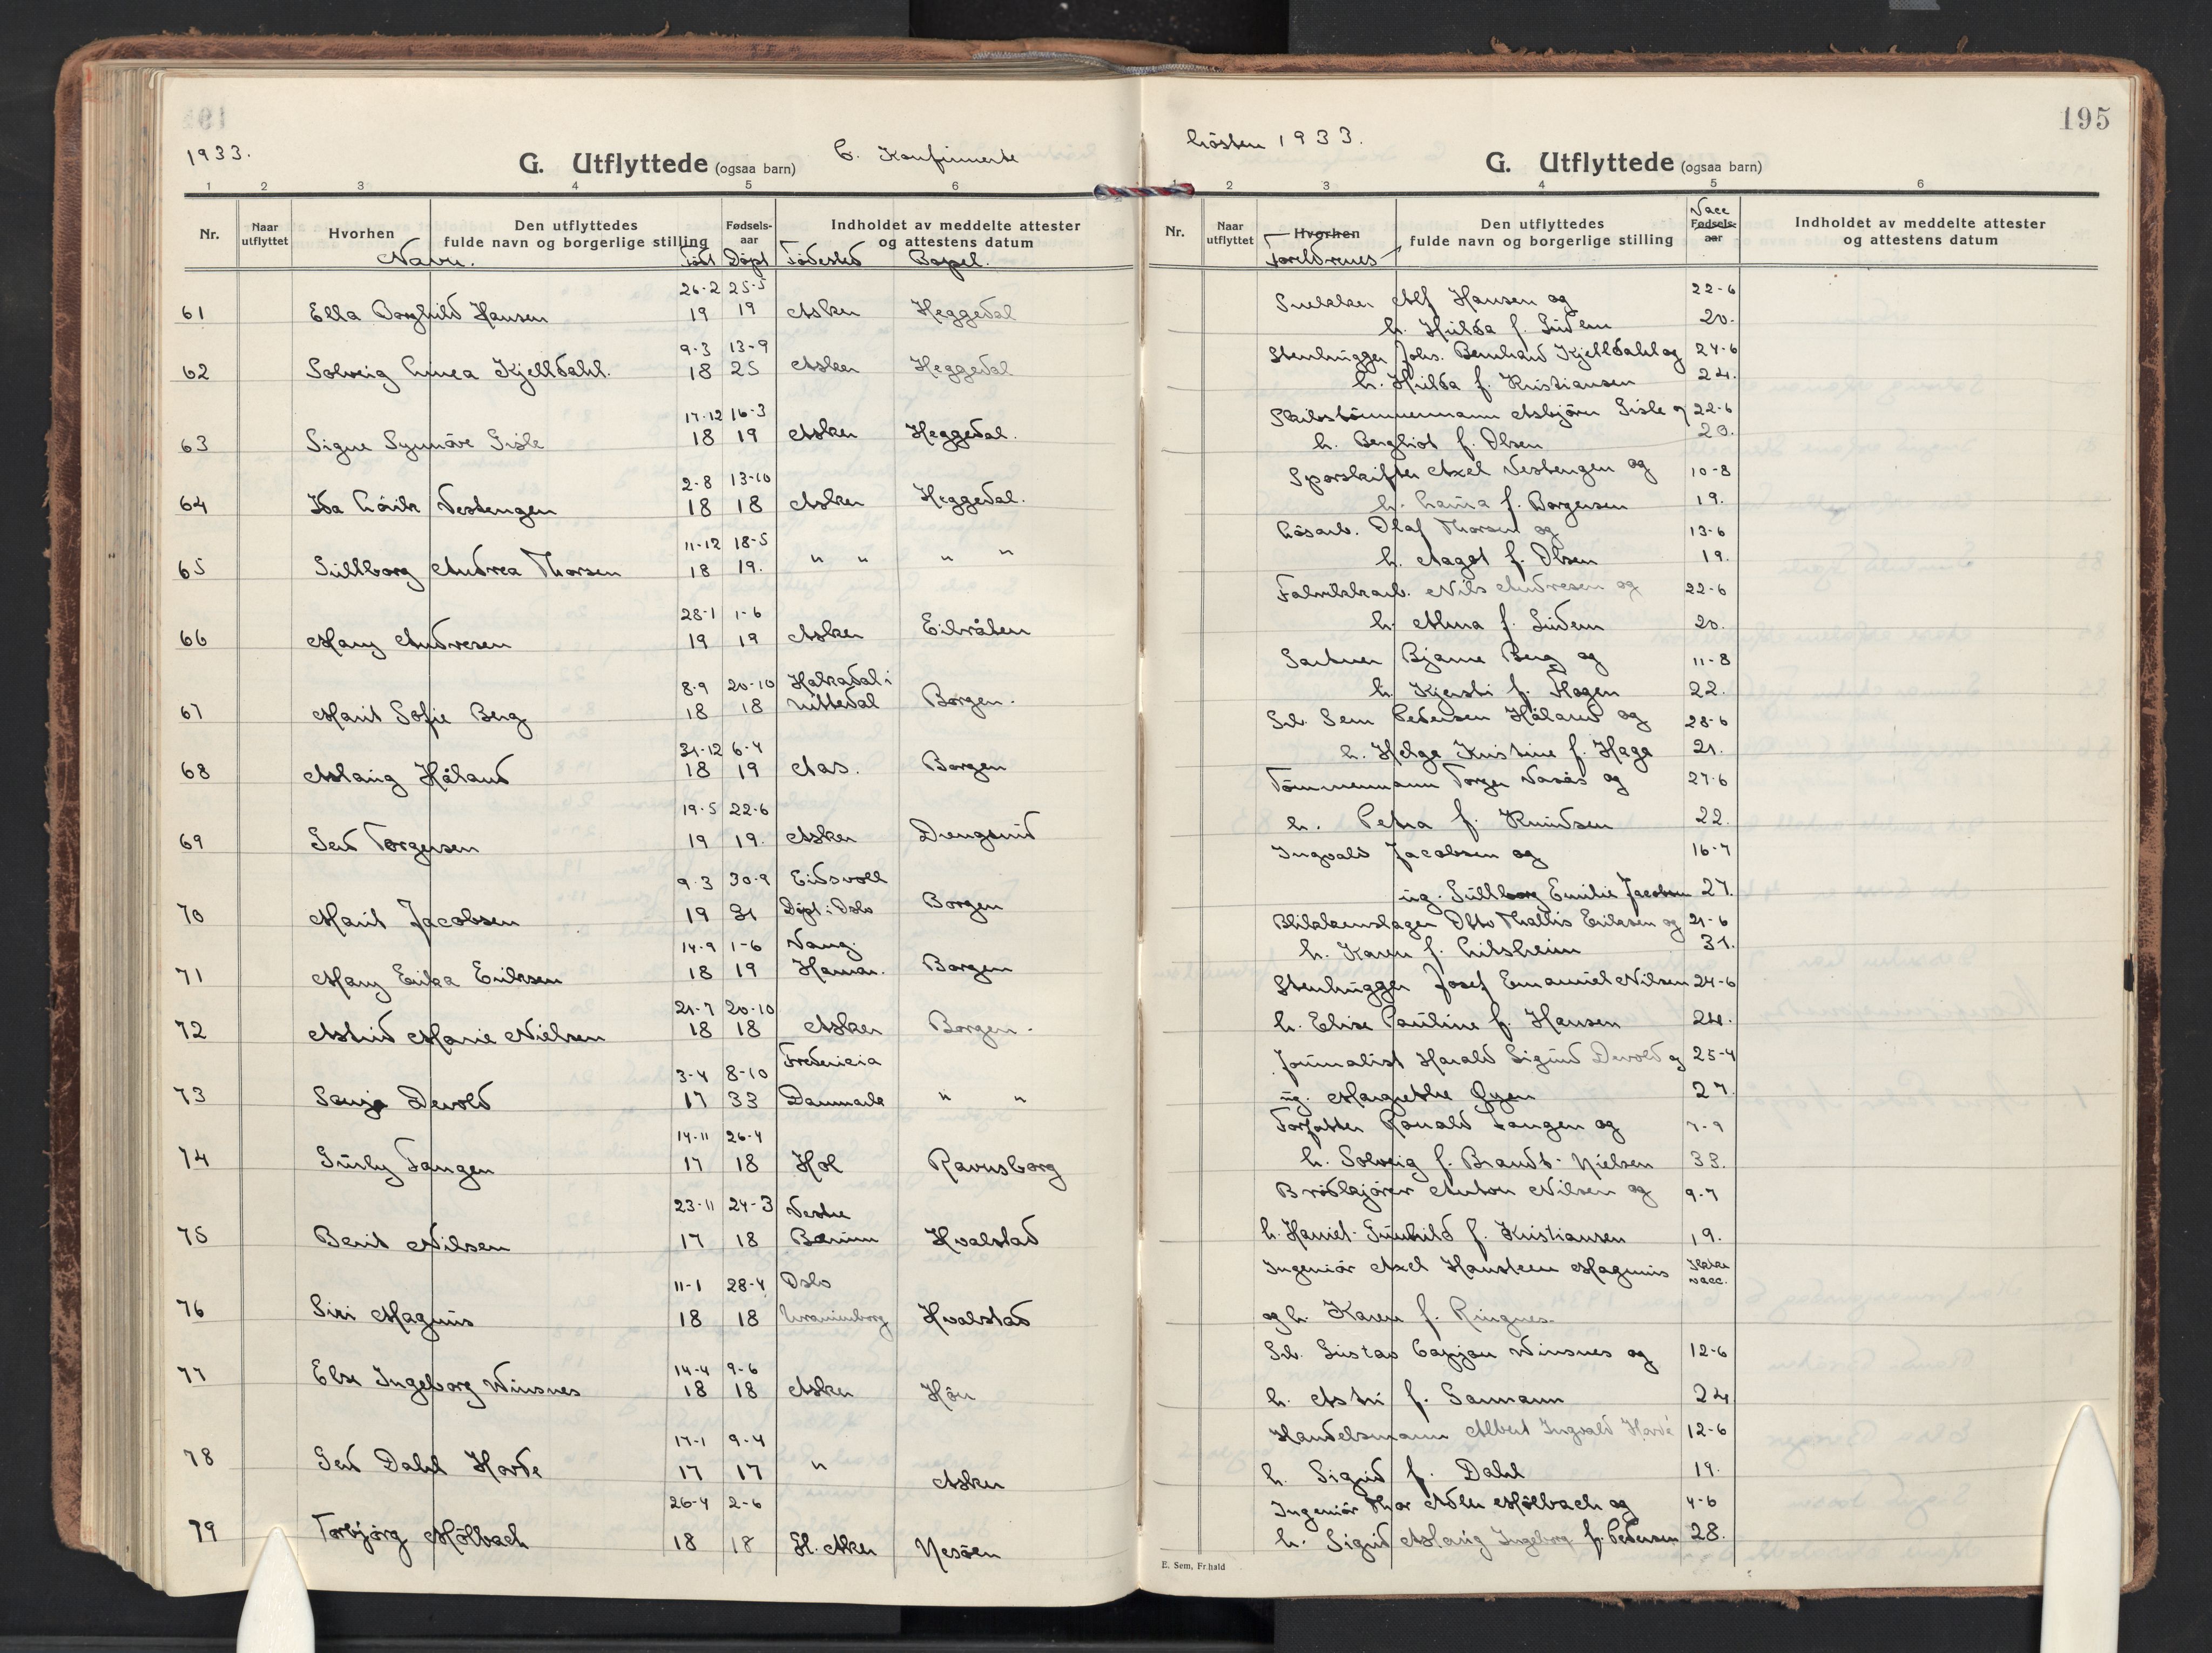 1933.
G. Utflyttede (ogsaa barn)
C. Konfirmerte
1 2 3 4 5 6
Nr. Naar utflyttet Hvorhen Den utflyttedes fulde navn og borgerlige stilling Fødsels-aar Indholdet av meddelte attester og attestens datum
Navn. Født Døpt Fødested Bopel.
26-2 25-5
61 Ella Borghild Hansen 19 19 Asker Heggedal
9-3 13-9
62 Solveig Linea Kjelldahl. 18 25 Asker Heggedal
17-12 16-3
63 Signe Synnöve Gisle 18 19 Asker Heggedal.
2-8 13-10
64 Ida Lövik Vestengen 18 18 Asker Heggedal.
11-12 18-5
65 Gullborg Andrea Thorsen 18 19. " " " "
28-1 1-6
66 Mary Andresen 19 19 Asker Eilvåten
8-9 20-10 Hakadal i
67 Marit Sofie Berg 18 18 Nittedal Borgen.
31-12 6-4
68 Aslaug Håland 18 19 Aas. Borgen
19-5 22-6
69 Gerd Torgersen 19 19. Asker Drengsrud
9-3 30-9 Eidsvoll
70 Marit Jacobsen 19 31 Døpt i Oslo Borgen
14-9 1-6 Vang.
71 Mary Erika Eriksen 18 19 Hamar. Borgen
21-7 20-10
72 Astrid Marie Nielsen 18 18 Asker Borgen.
3-4 8-10 Fredericia
73 Sonja Devold 17 33 Danmark " "
14-11 26-4
74 Guly Tangen 17 18 Hol Ravnsborg
23-11 24-3 Vestre
75 Berit Nilsen 17 18 Bærum Hvalstad
11-1 28-4 Oslo
76 Siri Magnus 18 18 Uranienborg Hvalstad
14-4 9-6
77 Else Ingeborg Winsnes 18 18 Asker Hön
17-1 9-4
78 Gerd Dahl Hovde 17 17 " Asker
26-4 2-6
79 Torbjörg Mölbach 18 18 St. Aker Nesöen
195
hösten 1933.
G. Utflyttede (ogsaa barn)
1 2 3 4 5 6
Nr. Naar utflyttet Hvorhen Den utflyttedes fulde navn og borgerlige stilling Vacc Fødsels-aar Indholdet av meddelte attester og attestens datum
Foreldrenes
Snekker Alf Hansen og 22-6
h. Hilda f. Gudem 20.
Stenhugger Johs. Bernhard Kjelldahl og 24-6
h. Hilda f. Kristiansen 24.
Skibstömmermann Asbjörn Gisle og 22-6
h. Bergliot f. Olsen 20.
Sporskifter Axel Vestengen og 10-8
h. Laura f. Borgersen 19.
Lösarb. Olaf Thorsen og 13-6
h. Aagot f. Olsen 19.
Fabrikkarb. Nils Andresen og 22-6
h. Alma f. Gudem 20.
Gartner Bjarne Berg og 11-8
h. Kjersti f. Hagen 22.
Grb. Sem Pedersen Håland og 28-6
h. Helga Kristine f. Haga 21.
Tömmermann Torger Vasås og 27-6
h. Petra f. Knudsen 22.
Ingvald Jacobsen og 16-7
ug. Gullborg Emilie Jacobsen 27.
Blikkenslager Otto Thallis Eriksen og 21-6
h. Karen f. Litsheim 31.
Stenhugger Josef Emanuel Nilsen 24-6
h. Elise Pauline f. Hansen 24.
Journalist Harald Sigurd Devold og 25-4
ug. Margrethe Gyen 27.
Forfatter Ronald Fangen og 7-9
h. Solveig f. Brandt-Nielsen 33.
Brödkjörer Anton Nilsen og 9-7
h. Harriet Gunhild f. Kristiansen 19.
Ingeniör Axel Hansteen Magnus Ikke vacc.
og h. Karen f. Ringnes.
Grb. Gustav Cappjan Winsnes og 12-6
h. Astri f. Saumann 24
Handelsmann Albert Ingvald Hovde 12-6
h. Sigrid f. Dahl 19.
Ingeniör Thor Adler Mölbach og 4-6
h. Sigrid Aslaug Ingeborg f. Pedersen 28.
E. Sem, Fr.hald